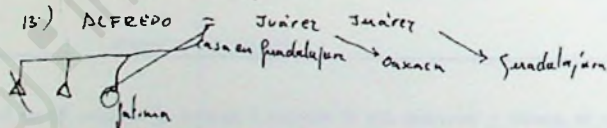 13.) ALFREDO = Juárez Juárez
Casa en Guadalajara Oaxaca Guadalajara
Fatima